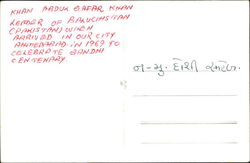 KHAN ABDUL GAFAR KHAN
LEADER OF BALUCHISTAN
(PAKISTAN) WHEN
ARRIVED IN OUR CITY
AHMEDABAD IN 1969 TO
CELEBRATE GANDHI
CENTENARY